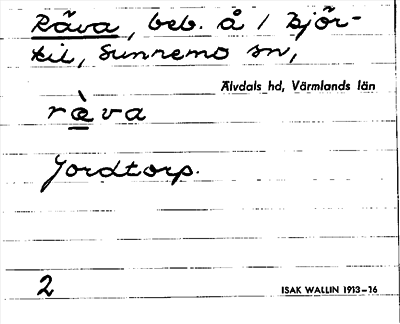 Räva, beb. å / Björ-
kil, Sunnemo sn,
Älvdals hd, Värmlands län
ræ̀va
Jordtorp.
2
ISAK WALLIN 1913–16